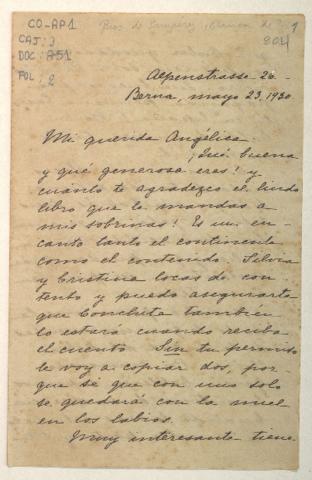 CO-AP1
CAJ: 3
DOC: 851
FOL: 2
804
Alpenstrasse 26.
Berna, mayo 23, 1930
Mi querida Angélica.
¡Qué buena
y qué generosa eres! y
cuánto te agradezco el lindo
libro que le mandas a
mis sobrinas! Es un en-
canto tanto el continente
como el contenido. Silvia
y Cristina locas de con
tento y puedo asegurarte
que Conchita tambien
lo estará cuando reciba
el cuento. Sin tu permiso
le voy a copiar dos, por-
que sé que con uno solo
se quedará con la miel
en los labios.
Muy interesante tiene